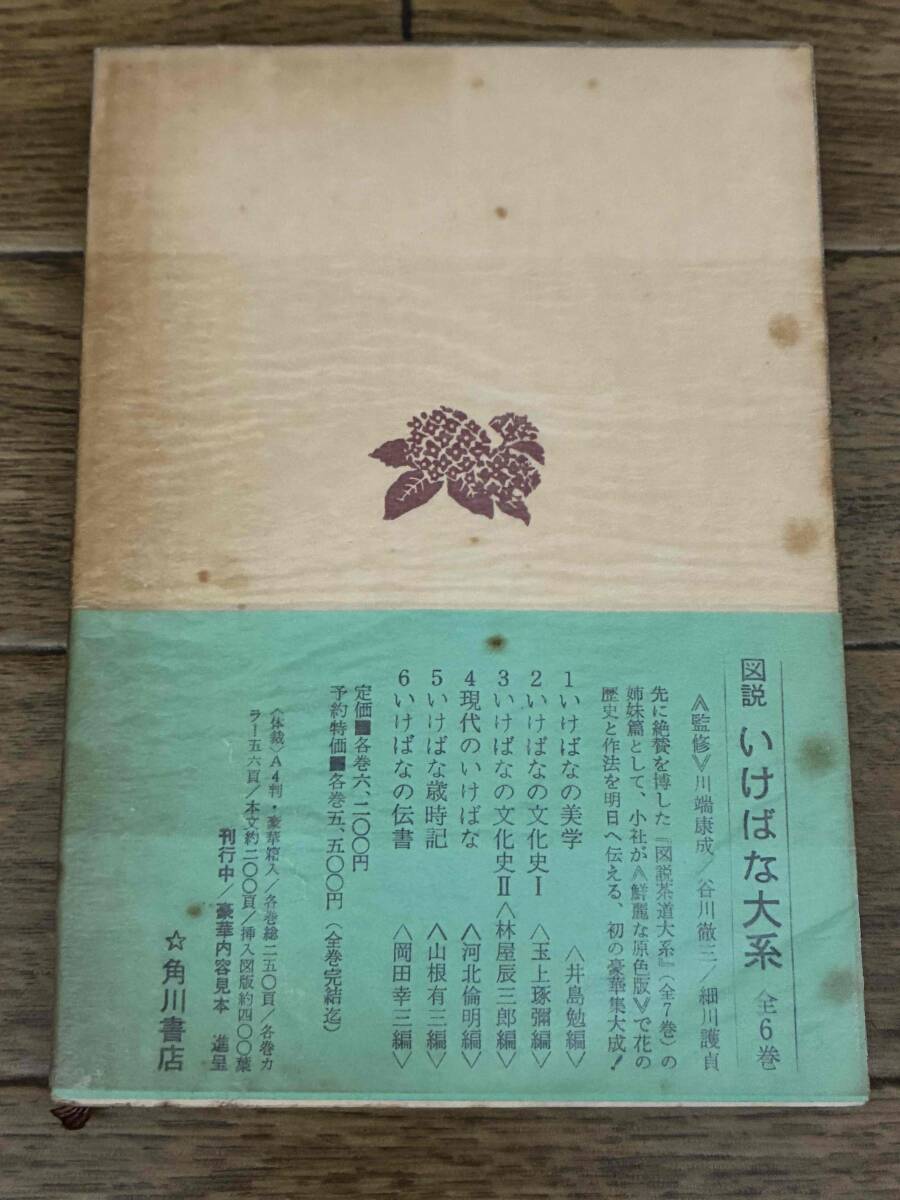 図説 いけばな大系 全6巻
《監修》川端康成/谷川徹三/細川護貞
先に絶賛を博した『図説茶道大系』(全7巻)の
姉妹篇として、小社が《鮮麗な原色版》で花の
歴史と作法を明日へ伝える、初の豪華集大成!
1いけばなの美学 〈井島勉編〉
2いけばなの文化史Ⅰ 〈玉上琢彌編〉
3いけばなの文化史Ⅱ〈林屋辰三郎編〉
4現代のいけばな 〈河北倫明編〉
5いけばな歳時記 〈山根有三編〉
6いけばなの伝書 〈岡田幸三編〉
定価■各巻六、二〇〇円
予約特価■各巻五、五〇〇円(全巻完結迄)
〈体裁〉A4判・豪華箱入/各巻総二五〇頁/各巻カ
ラー五六頁/本文約二〇〇頁/挿入図版約四〇〇葉
刊行中/豪華内容見本 進呈
☆角川書店